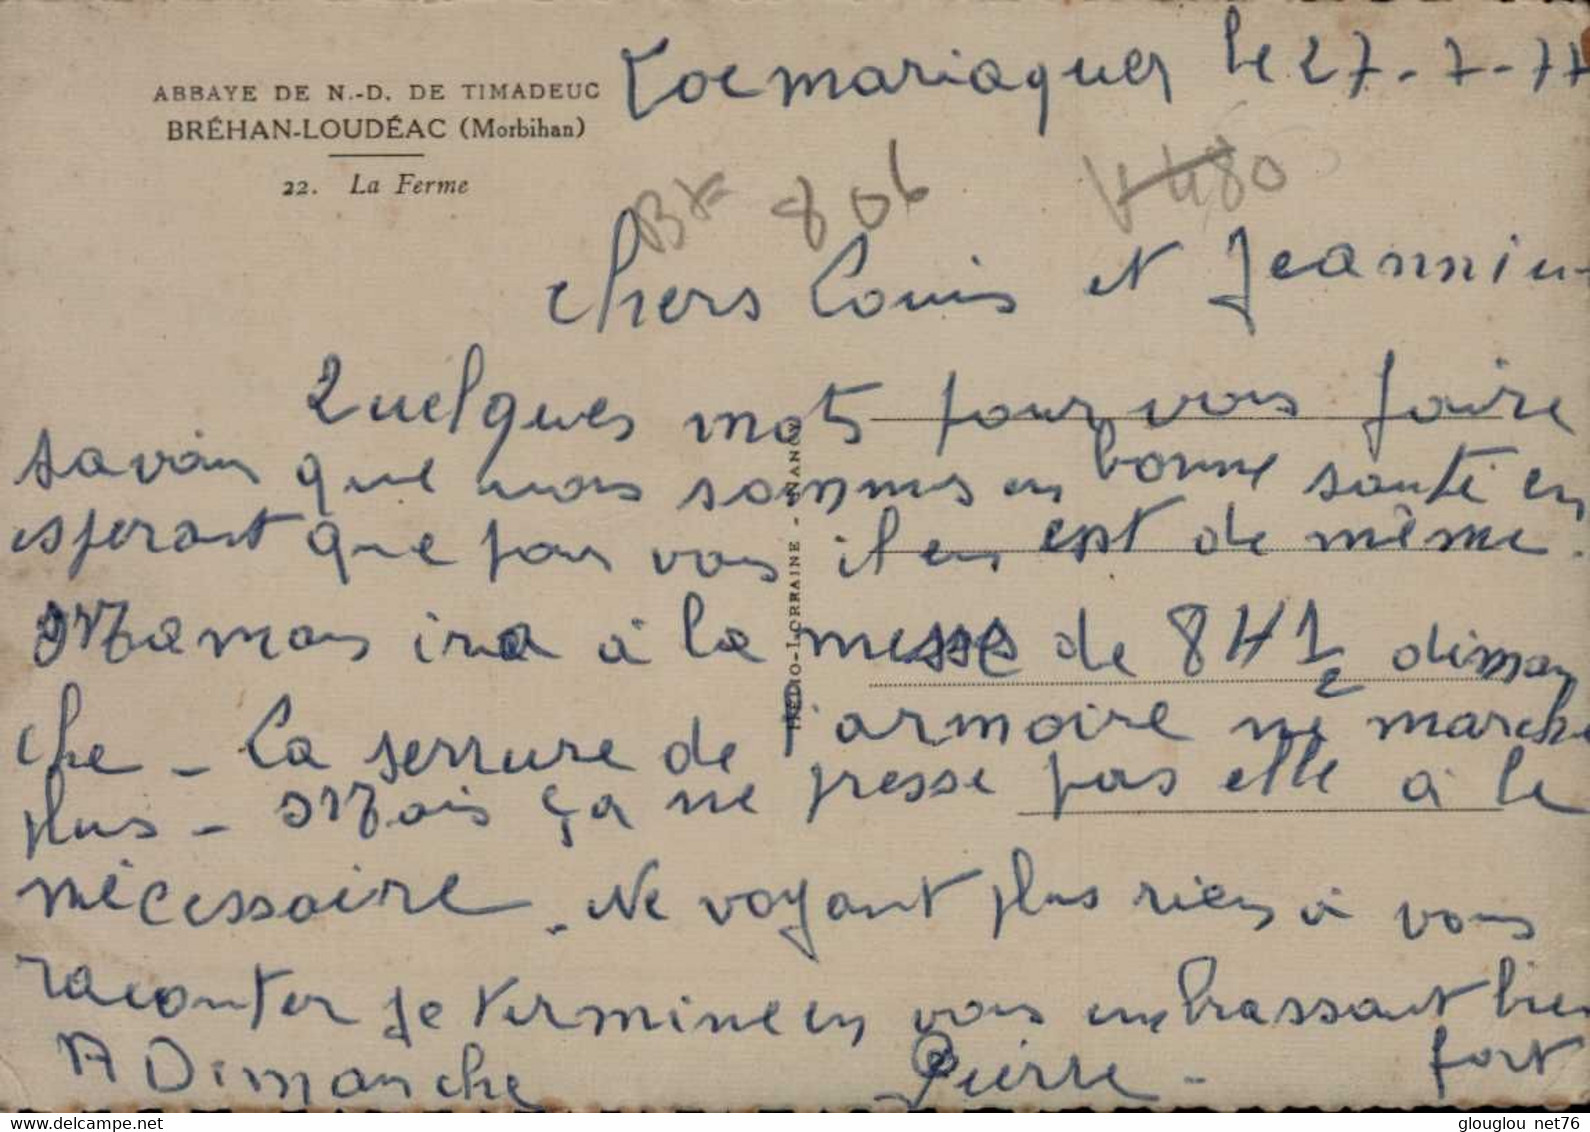 ABBAYE DE N.-D. DE TIMADEUC
BRÉHAN-LOUDÉAC (Morbihan)
22. La Ferme
Locmariaquer le 27-7-77
BK 806
480
Chers Louis et Jeannine
Quelques mots pour vous faire
savoir que nous sommes en bonne santé en
esperant que pour vous il en est de même.
Maman ira à la messe de 8H 1/2 diman
che - La serrure de l'armoire ne marche
plus - Mais ça ne presse pas elle a le
nécessaire. Ne voyant plus rien à vous
raconter je termine en vous embrassant bien
fort
A Dimanche Pierre -
HELIO-LORRAINE - NANCY
glouglou net76